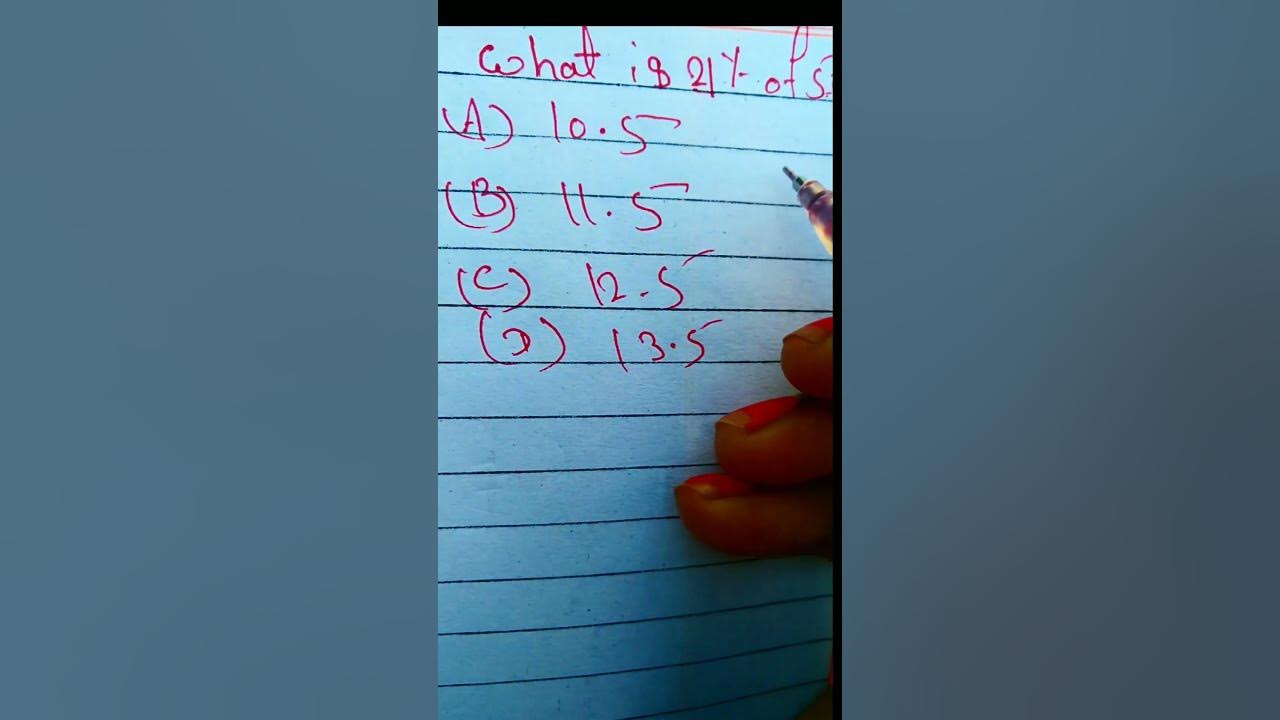 What is 21% of 5
(A) 10.5
(B) 11.5
(C) 12.5
(D) 13.5